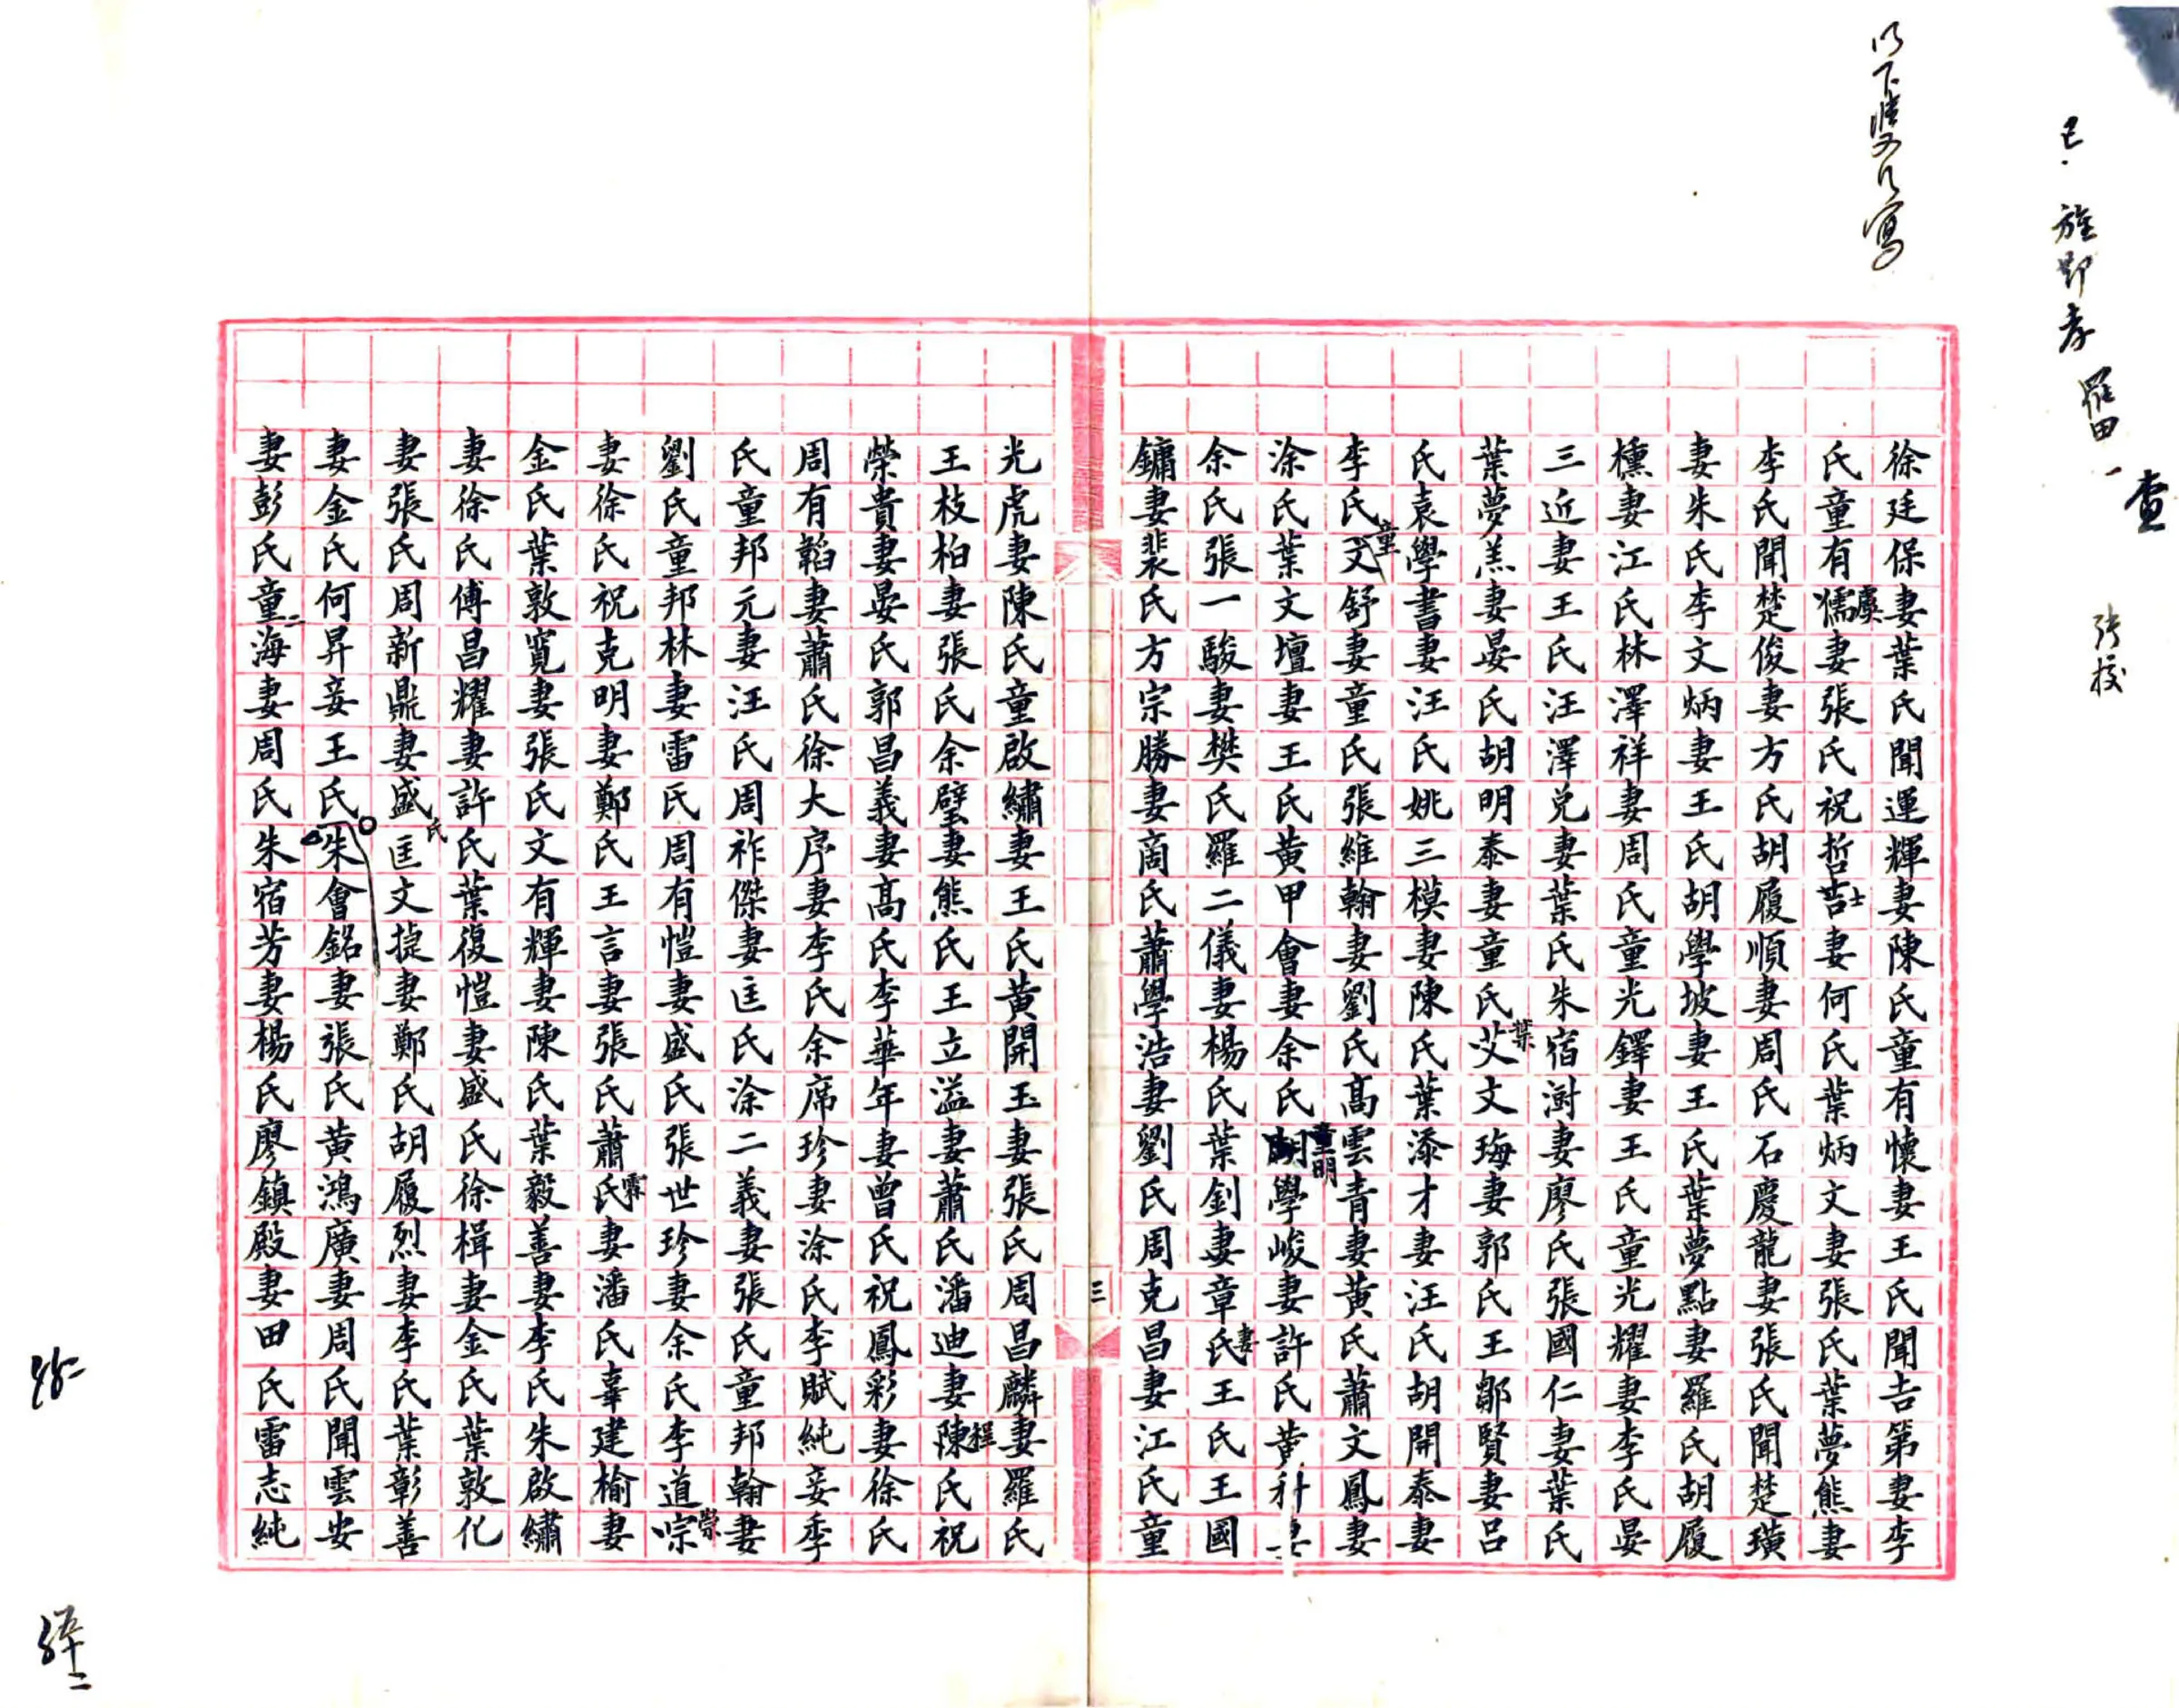 以下雙行寫
已旌節孝 羅田一
查
張校
徐廷保妻葉氏聞運輝妻陳氏童有懷妻王氏聞吉第妻李
氏童有儒虞妻張氏祝哲吉士妻何氏葉炳文妻張氏葉夢熊妻
李氏聞楚俊妻方氏胡履順妻周氏石慶龍妻張氏聞楚璜
妻朱氏李文炳妻王氏胡學坡妻王氏葉夢點妻羅氏胡履
櫄妻江氏林澤祥妻周氏童光鐸妻王氏童光耀妻李氏晏
三近妻王氏汪澤兌妻葉氏朱宿澍妻廖氏張國仁妻葉氏
葉夢羔妻晏氏胡明泰妻童氏艾葉文珻妻郭氏王鄒賢妻呂
氏袁學書妻汪氏姚三模妻陳氏葉添才妻汪氏胡開泰妻
李氏文童舒妻童氏張維翰妻劉氏高雲青妻黃氏蕭文鳳妻
涂氏葉文壇妻王氏黃甲會妻余氏胡童明學峻妻許氏黃科妻
余氏張一駿妻樊氏羅二儀妻楊氏葉釗妻章氏妻王氏王國
鏞妻裴氏方宗勝妻商氏蕭學浩妻劉氏周克昌妻江氏童
三
光虎妻陳氏童啟繡妻王氏黃開玉妻張氏周昌麟妻羅氏
王枝柏妻張氏余璧妻熊氏王立溢妻蕭氏潘迪妻陳程氏祝
榮貴妻晏氏郭昌義妻高氏李華年妻曾氏祝鳳彩妻徐氏
周有韜妻蕭氏徐大序妻李氏余席珍妻涂氏李賦純妾季
氏童邦元妻汪氏周祚傑妻匡氏涂二義妻張氏童邦翰妻
劉氏童邦林妻雷氏周有愷妻盛氏張世珍妻余氏李道崇
妻徐氏祝克明妻鄭氏王言妻張氏蕭氏霖妻潘氏辜建榆妻
金氏葉敦寬妻張氏文有輝妻陳氏葉毅善妻李氏朱啟繡
妻徐氏傅昌耀妻許氏葉復愷妻盛氏徐楫妻金氏葉敦化
妻張氏周新鼎妻盛氏匡文捷妻鄭氏胡履烈妻李氏葉彰善
妻金氏何昇妾王氏朱會銘妻張氏黃鴻廣妻周氏聞雲安
妻彭氏童二海妻周氏朱宿芳妻楊氏廖鎮殿妻田氏雷志純